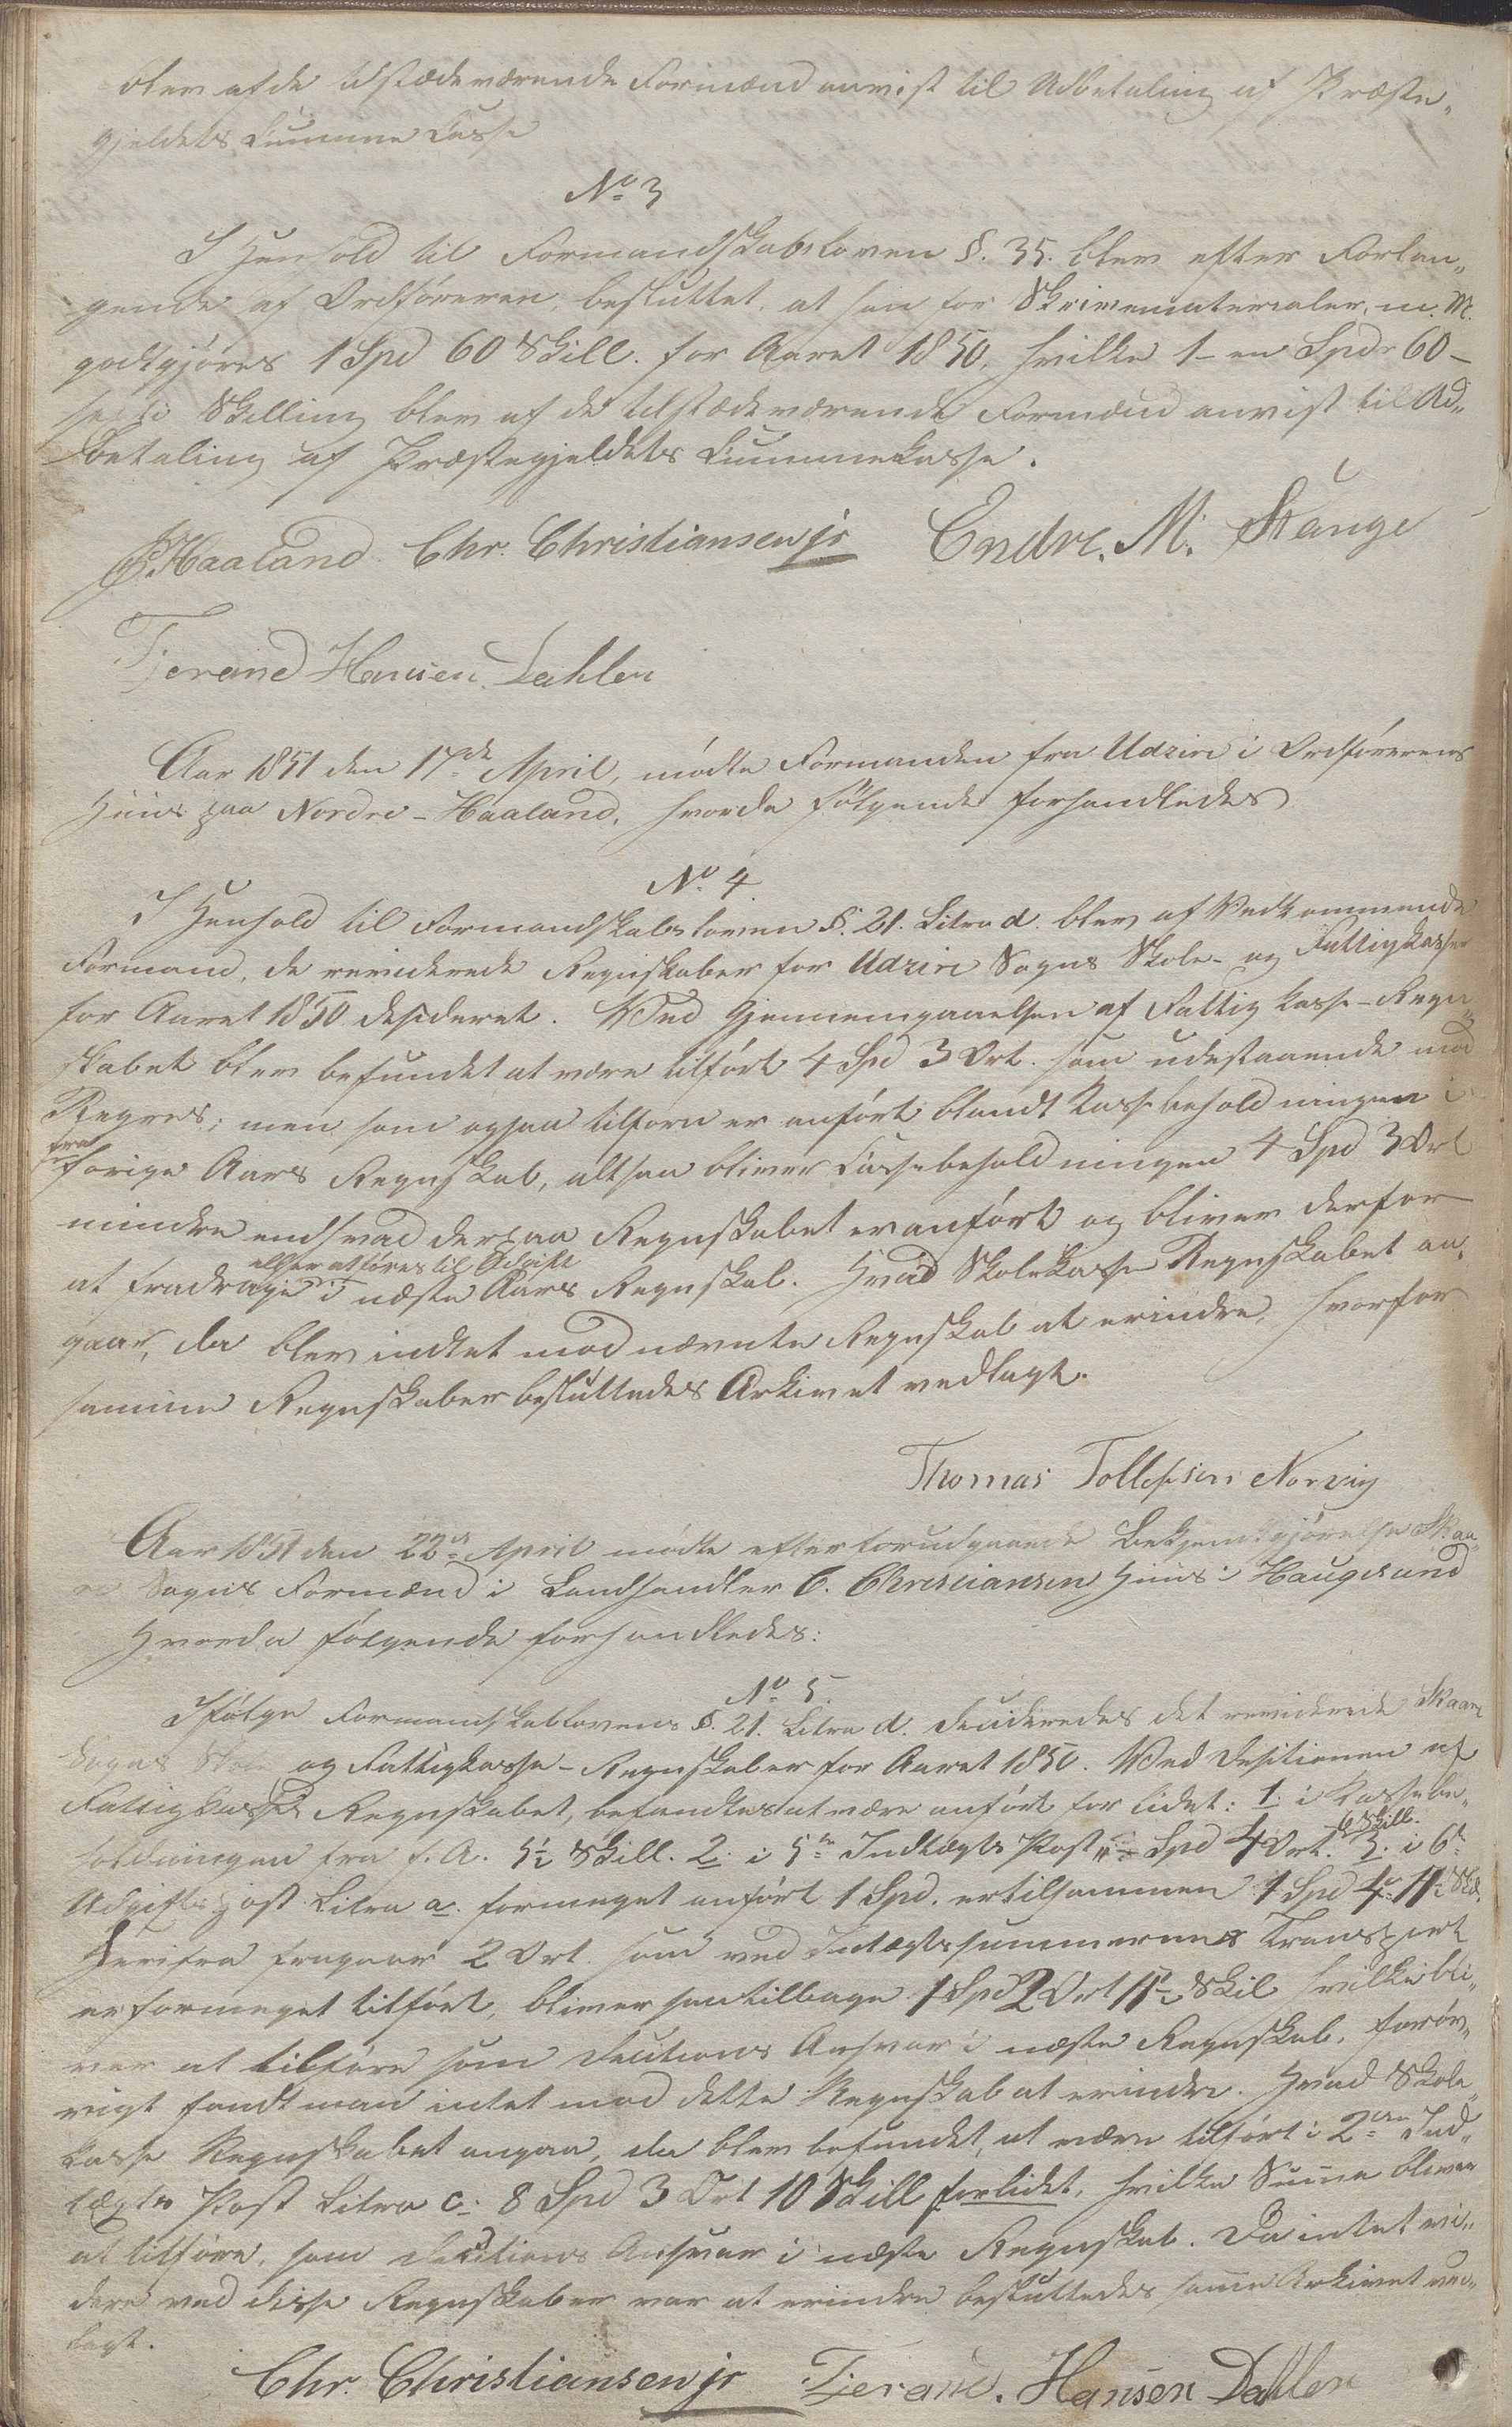 blev af de tilstædeværende Formænd anvist til Udbetaling af Præste„
gjeldets Lumme Casse
No 3
I Henhold til Formandskabsloven §. 35. blev efter Forlan„
gende af Ordføreren, besluttet, at han for Skrivematerialer, m. M.
godtgjøres 1 Spd 60 Skill. for Aaret 1850, hvilke 1 - en Spdr 60 -
Skilling blev af de tilstædeværende Formænd anvist til Ud„
betaling af Præstegjeldets Lummekasse.
Haaland Chr. Christiansen jr Endre. M. Stange
Tjerand Hansen Dahlen
Aar 1851 den 17de April, mødte Formanden fra Udzire i Ordførerens
Huus paa Nordre-Haaland, hvorda følgende forhandledes
No 4
I Henhold til Formandskabsloven §. 21. Litra d. blev af Vedkommende
Formand, de reviderede Regnskaber for Udzire Sogns Skole- og Fattigkasser
for Aaret 1850 desideret. Ved Gjennemgaaelsen af Fattig Kasse-Regn„
skabet blev befundet at være tilført 4 Spd 3 Ort. som udestaaende mod
Regres; men som ogsaa tilforn er anført blandt Kassebeholdningen i
fra
forige Aars Regnskab, altsaa bliver Cassebeholdningen 4 Spd 3 Ort
mindre end hvad der paa Regnskabet er anført og bliver derfor
eller at føres til Udgivt
at fradrage i næste Aars Regnskab. Hvad Skolekasse Regnskabet an„
gaar, da blev indtet mod nævnte Regnskab at erindre, hvorfor
samme Regnskaber besluttedes Arkivet vedlagt.
Thomas Tollefsen Norvig
Aar 1851 den 22de April mødte efter forudgaaende Bekjendtgjørelse Skaa„
re Sogns Formænd i Landhandler C. Christiansens Huus i Haugesund
Hvorda følgende forhandledes:
No 5.
Ifølge Formandskabslovens §. 21. Litra d. decideredes det reviderede Skaare
Sogns Skole og Fattigkasse-Regnskaber for Aaret 1850. Ved Desitionen af
Fattigkasse Regnskabet, befandtes at være anført for lidet: 1. i Kassebe„
6 Skill.
holdningen fra f. A. 5½ Skill. 2. i 5te Indtægts Post Spd 4 Ort. 3. i 6te
Udgifts post Litra a. formeget anført 1 Spd. er tilsammen 1 Spd 4 11½ Skl.
Herifra fragaar 2 Ort som ved Indtægtssummernes Transport
er formeget tilført, bliver saa tilbage 1 Spd 2 Ort 11½ Skil hvilke bli„
ver at tilføre som Decitions Ansvar i næste Regnskab, forøv„
rigt fandt man intet mod dette Regnskab at erindre. Hvad Skole„
kasse Regnskabet angaa, da blev befundet, at være tilført i 2den Ind„
tægts Post Litra c. 8 Spd 3 Ort 10 Skill forlidet, hvilke Summe bliver
at tilføre, som Decitions Ansvar i næste Regnskab. Da intet vi„
dere ved disse Regnskaber var at erindre besluttedes samme Arkivet ved„
lagt.
Chr. Christiansen jr Tjerand. Hansen Dahlen